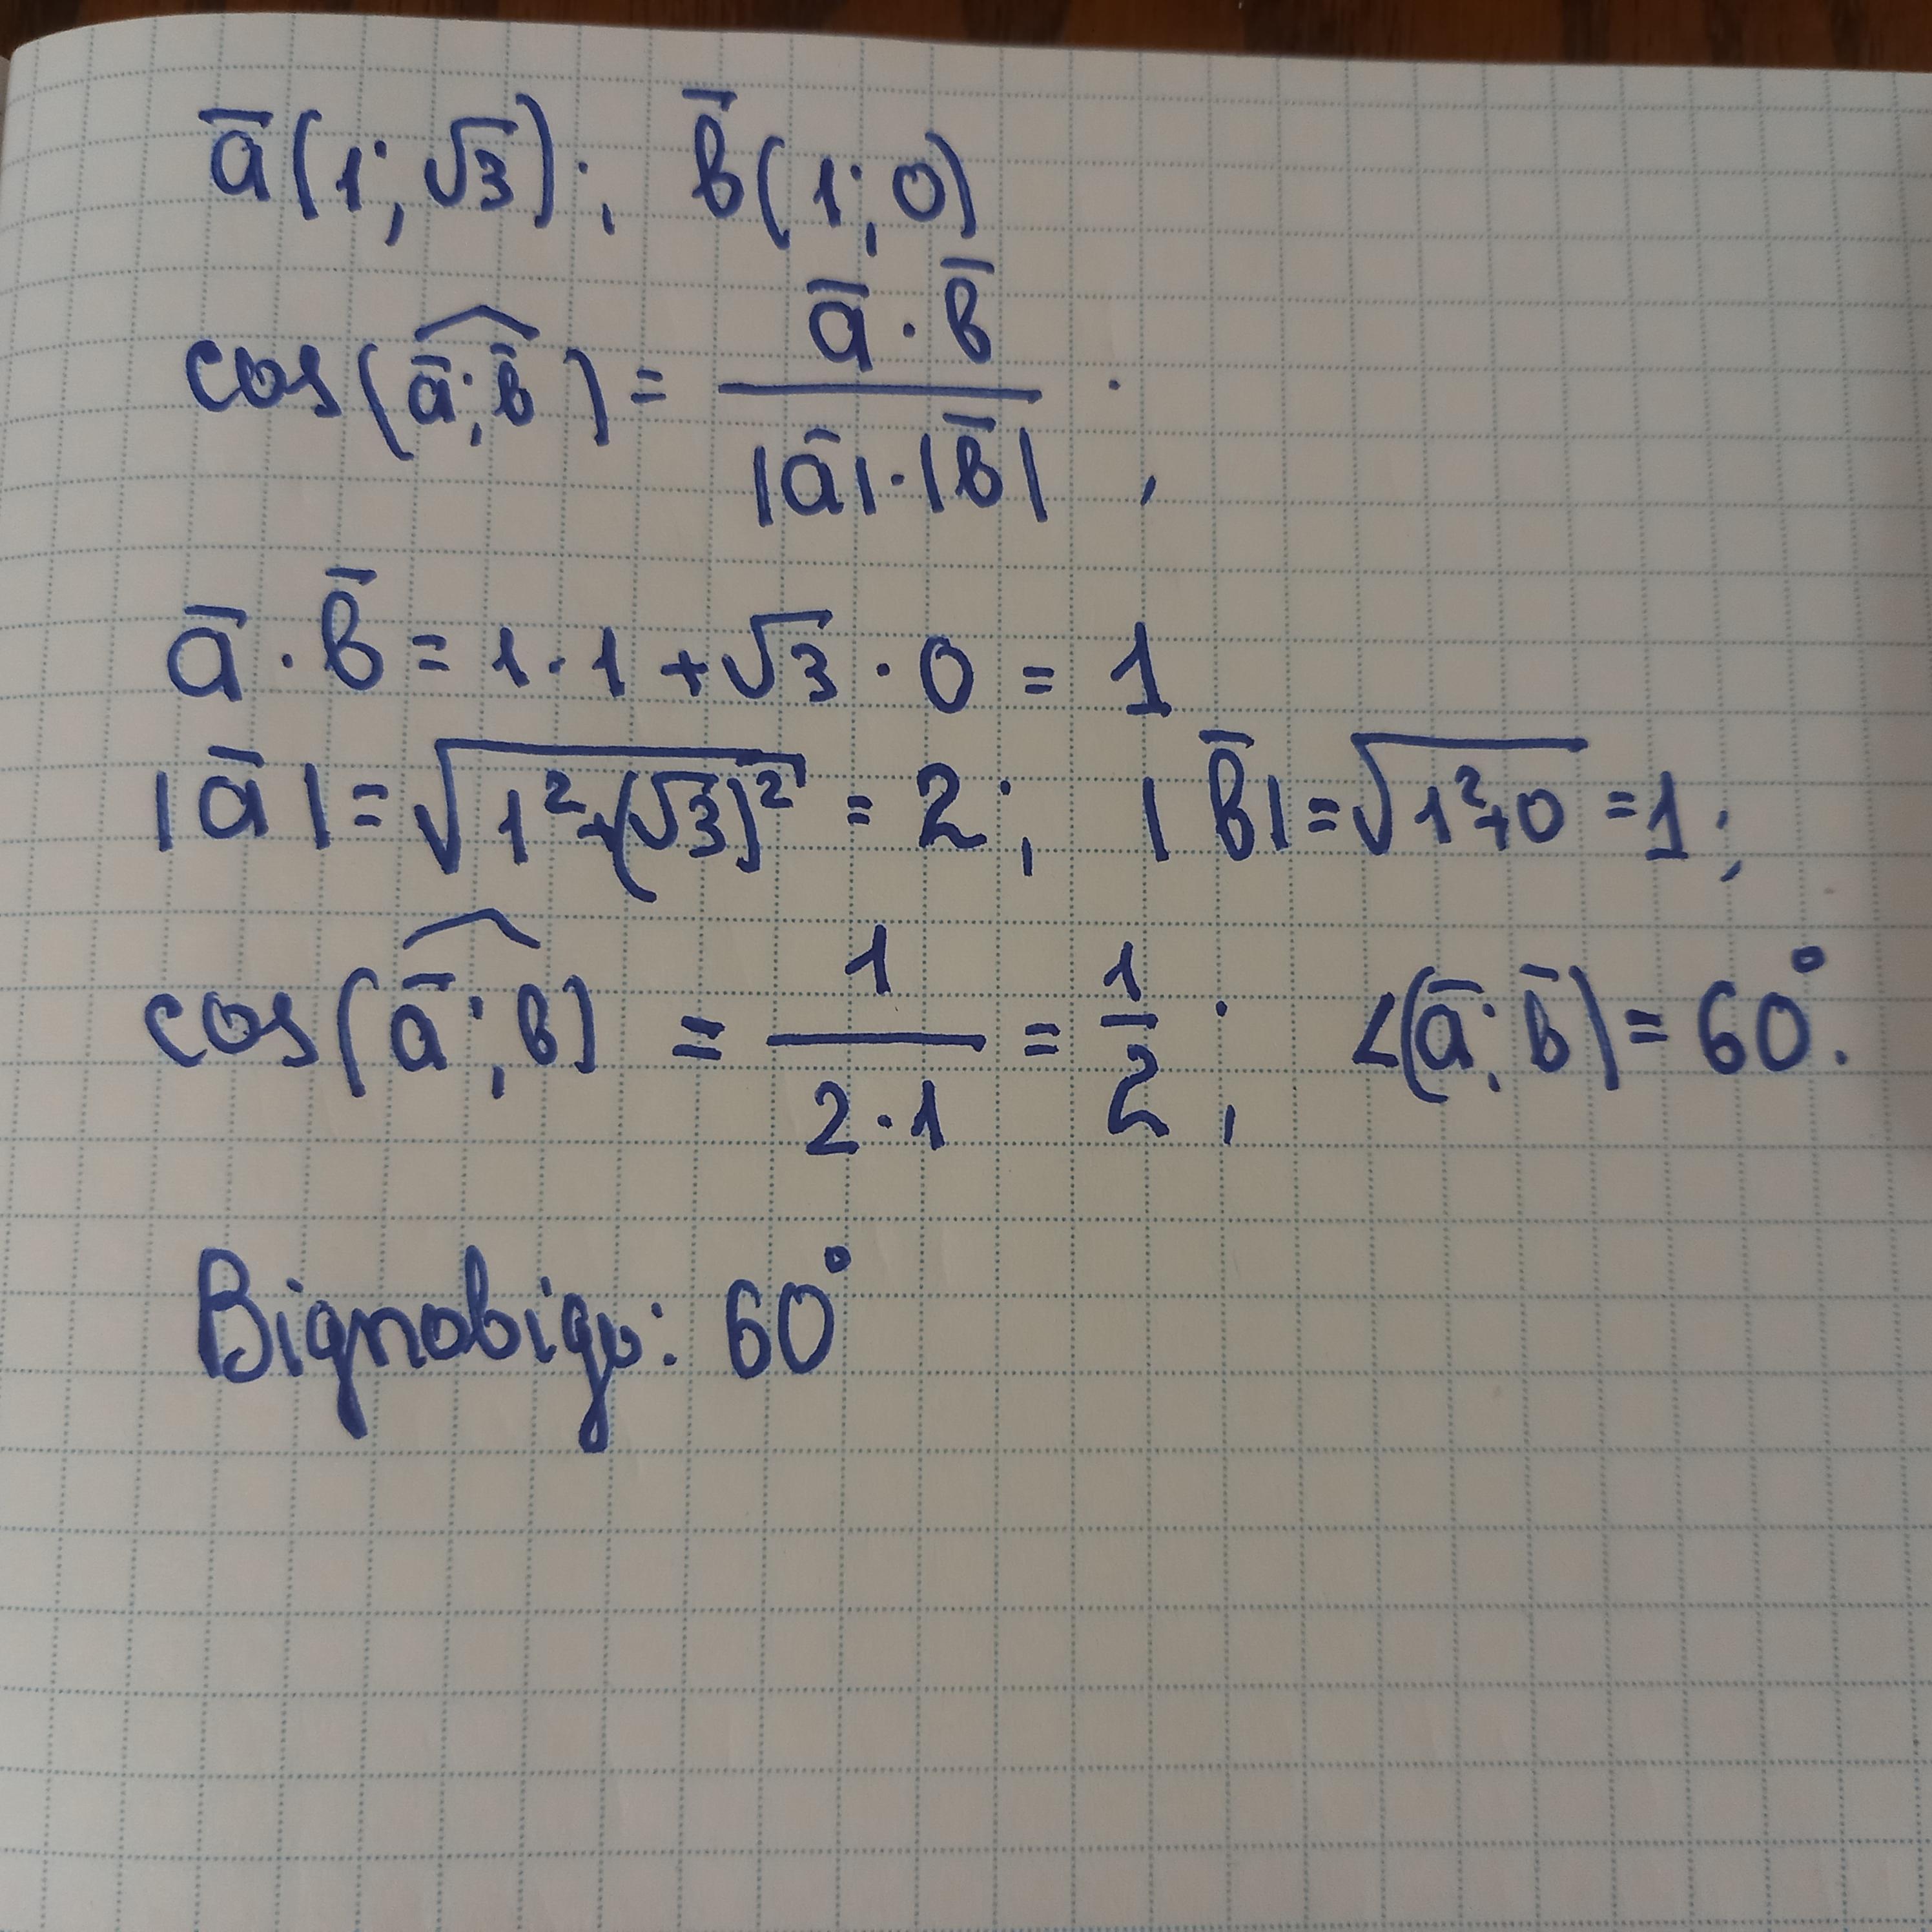 a̅(1; √3); b̅(1; 0)
cos(a̅; b̅) = (a̅ · b̅) / (|a̅| · |b̅|) ;
a̅ · b̅ = 1 · 1 + √3 · 0 = 1
|a̅| = √(1² + (√3)²) = 2; |b̅| = √(1² + 0) = 1;
cos(a̅; b) = 1 / (2 · 1) = 1/2 ; ∠(a̅; b̅) = 60°.
Відповідь: 60°